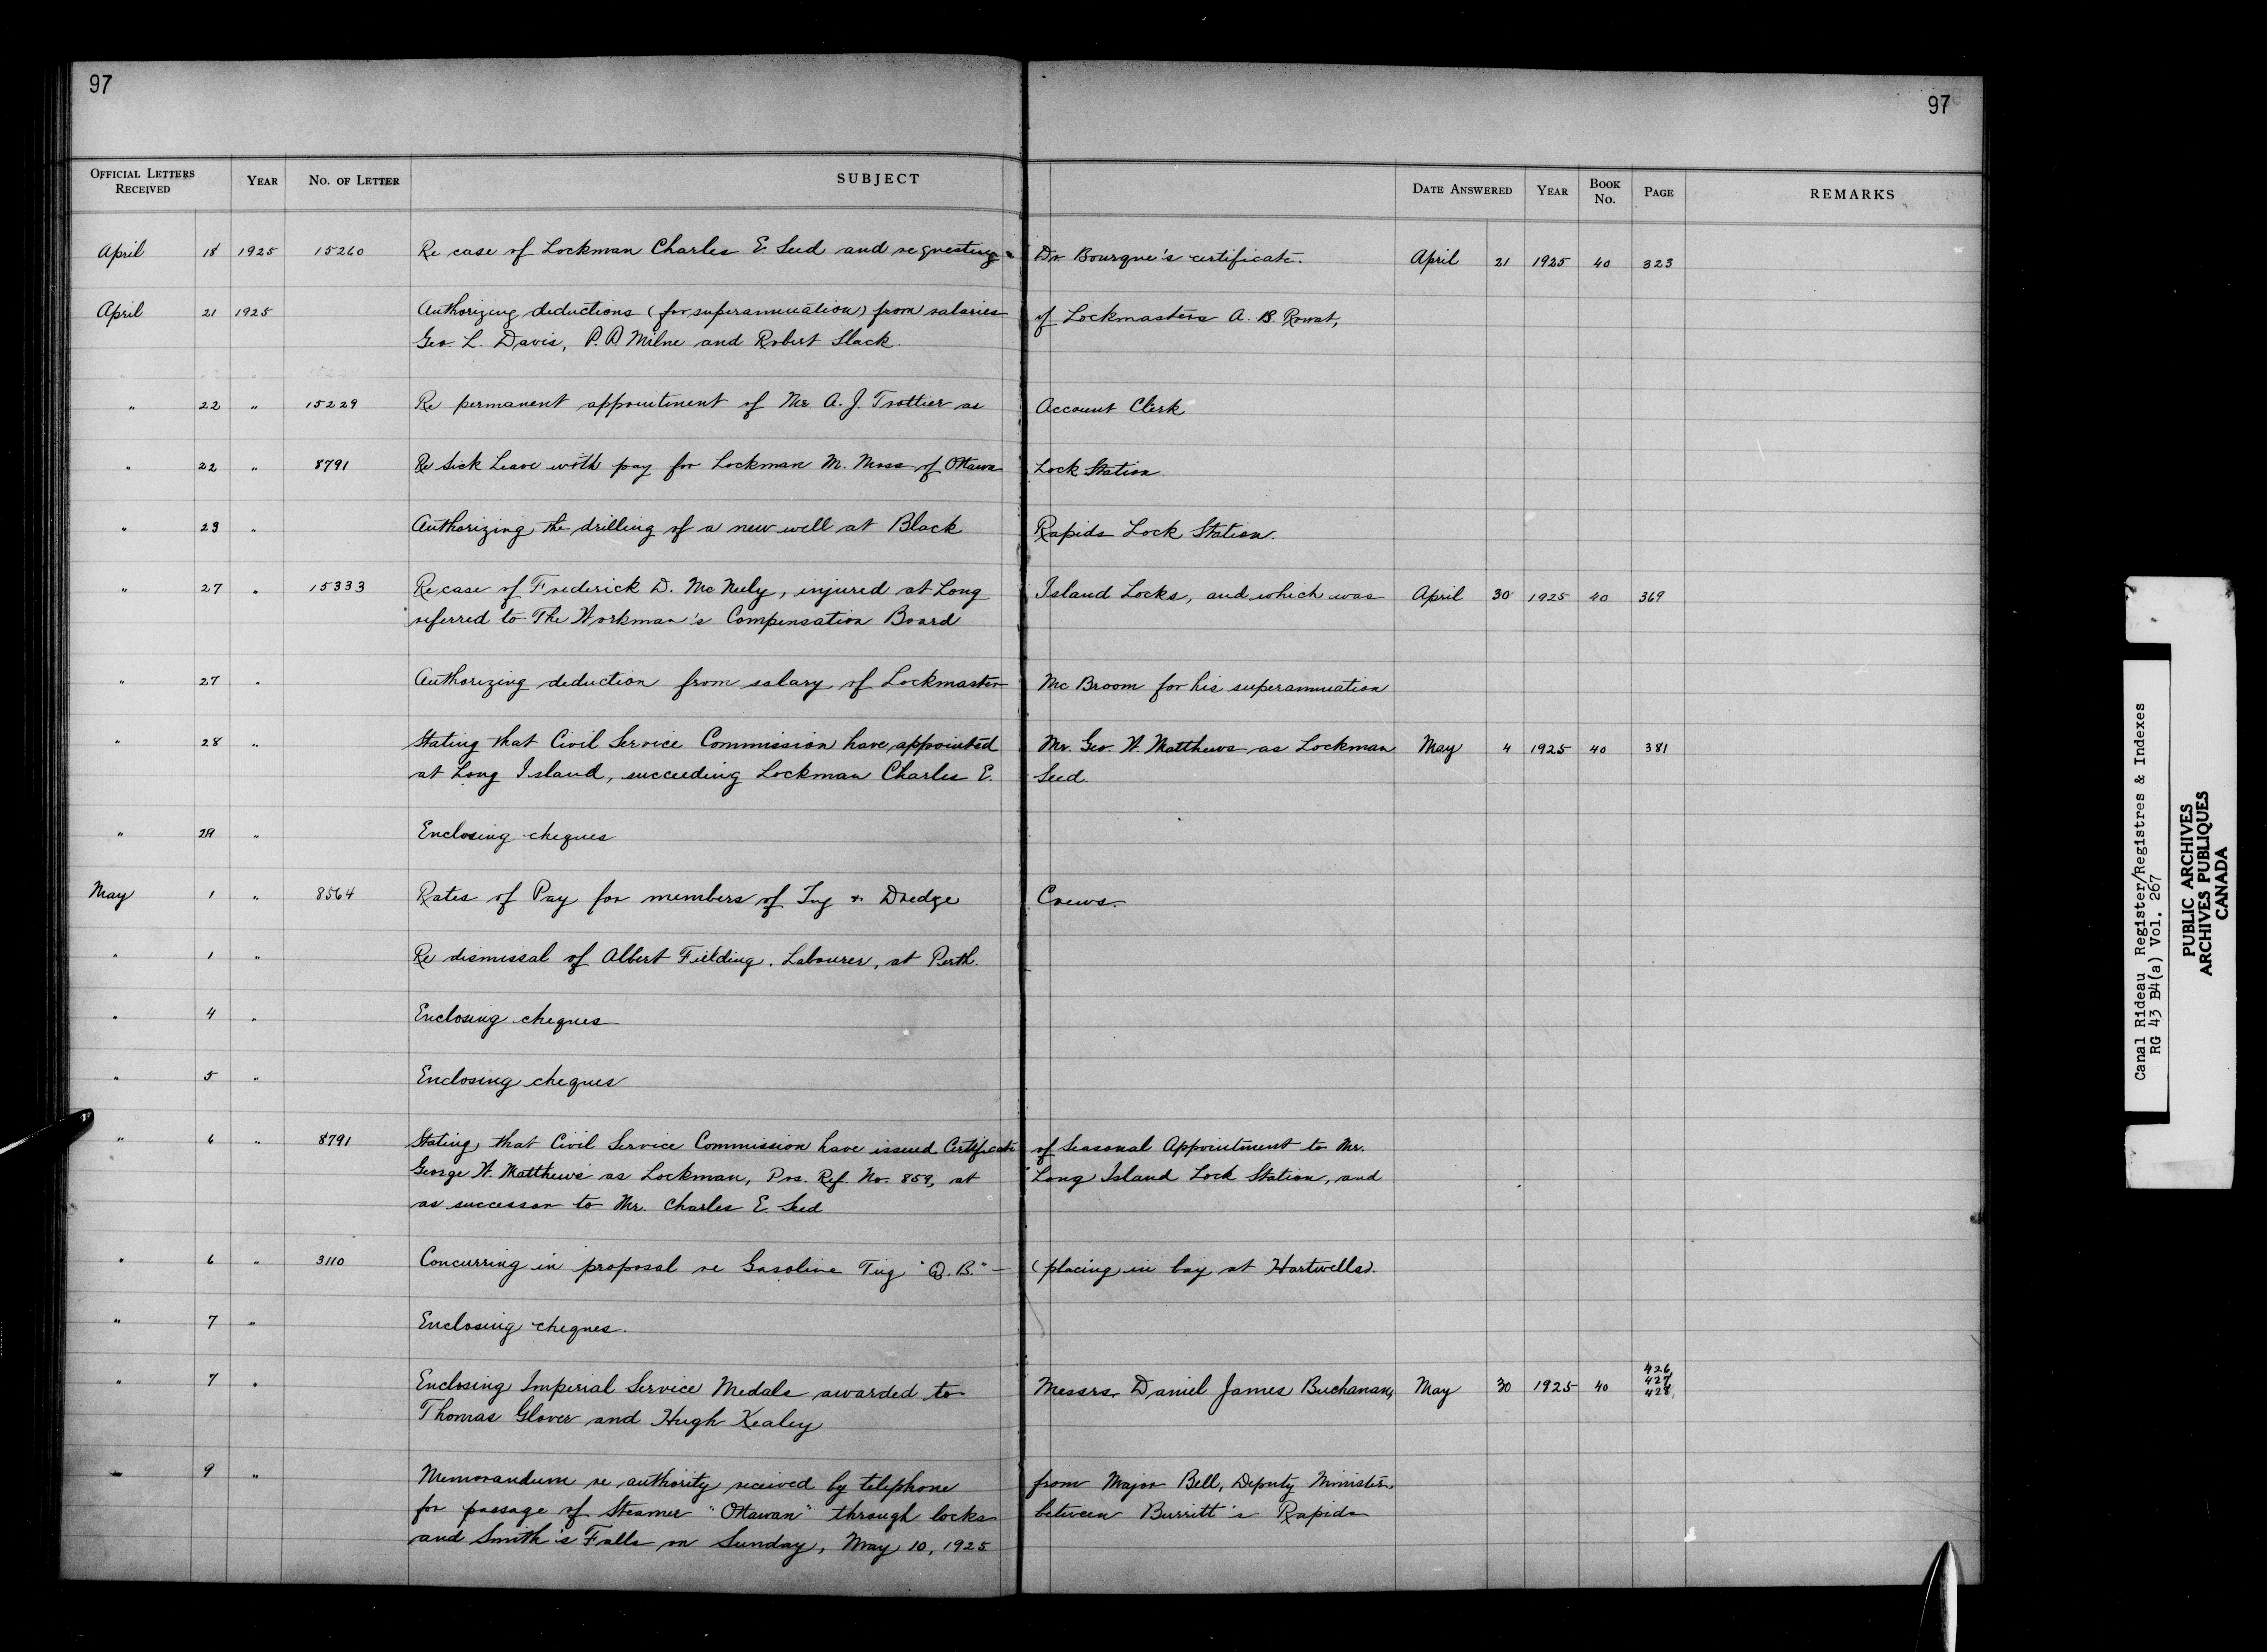 97
97
OFFICIAL LETTERS RECEIVED YEAR NO. OF LETTER SUBJECT DATE ANSWERED YEAR BOOK NO. PAGE REMARKS
April 18 1925 15260 Re case of Lockman Charles E. Seed and requesting Dr. Bourque's certificate. April 21 1925 40 323
April 21 1925 Authorizing deductions (for superannuation) from salaries of Lockmasters A. B. Rowat,
Geo. L. Davis, P. A. Milne and Robert Slack.
" 22 " 15229 Re permanent appointment of Mr. A. J. Trottier as Account Clerk
" 22 " 8791 Re Sick Leave with pay for Lockman M. Moss of Ottawa Lock Station.
" 23 " Authorizing the drilling of a new well at Black Rapids Lock Station.
" 27 " 15333 Re case of Frederick D. McNeely, injured at Long Island Locks, and which was April 30 1925 40 369
referred to The Workman's Compensation Board
" 27 " Authorizing deduction from salary of Lockmaster McBroom for his superannuation
" 28 " Stating that Civil Service Commission have appointed Mr. Geo. W. Matthews as Lockman May 4 1925 40 381
at Long Island, succeeding Lockman Charles E. Seed.
" 29 " Enclosing cheques
May 1 " 8564 Rates of Pay for members of Tug & Dredge Crews.
" 1 " Re dismissal of Albert Fielding, Labourer, at Perth.
" 4 " Enclosing cheques
" 5 " Enclosing cheques
" 6 " 8791 Stating that Civil Service Commission have issued Certificate of Seasonal Appointment to Mr.
George W. Matthews as Lockman, Pos. Ref. No. 859, at Long Island Lock Station, and
as successor to Mr. Charles E. Seed
" 6 " 3110 Concurring in proposal re Gasoline Tug "Q.B." — (placing in bay at Hartwells).
" 7 " Enclosing cheques.
" 7 " Enclosing Imperial Service Medals awarded to Messrs. Daniel James Buchanan, May 30 1925 40 426, 427, 428,
Thomas Glover and Hugh Kealey
" 9 " Memorandum re authority received by telephone from Major Bell, Deputy Minister,
for passage of Steamer "Ottawan" through locks between Burritt's Rapids
and Smith's Falls on Sunday, May 10, 1925
Canal Rideau Register/Registres & Indexes
RG 43 B4(a) Vol. 267
PUBLIC ARCHIVES
ARCHIVES PUBLIQUES
CANADA